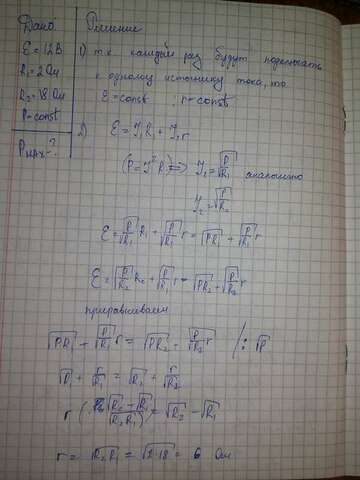 Дано
ε = 12 В
R₁ = 2 Ом
R₂ = 18 Ом
P - const
Решение
1) т.к. каждый раз будут подключать
к одному источнику тока, то
ε = const ; r - const
2) ε = I₁R₁ + I₁r
(P = I²R) => I₁ = √(P/R₁) аналогично
I₂ = √(P/R₂)
ε = √(P/R₁) R₁ + √(P/R₁) r = √(PR₁) + √(P/R₁) r
ε = √(P/R₂) R₂ + √(P/R₂) r = √(PR₂) + √(P/R₂) r
приравниваем
√(PR₁) + √(P/R₁) r = √(PR₂) + √(P/R₂) r /: √P
√R₁ + r/√R₁ = √R₂ + r/√R₂
r (√R₂ - √R₁)/√(R₂R₁) = √R₂ - √R₁
r = √(R₂R₁) = √(2·18) = 6 Ом